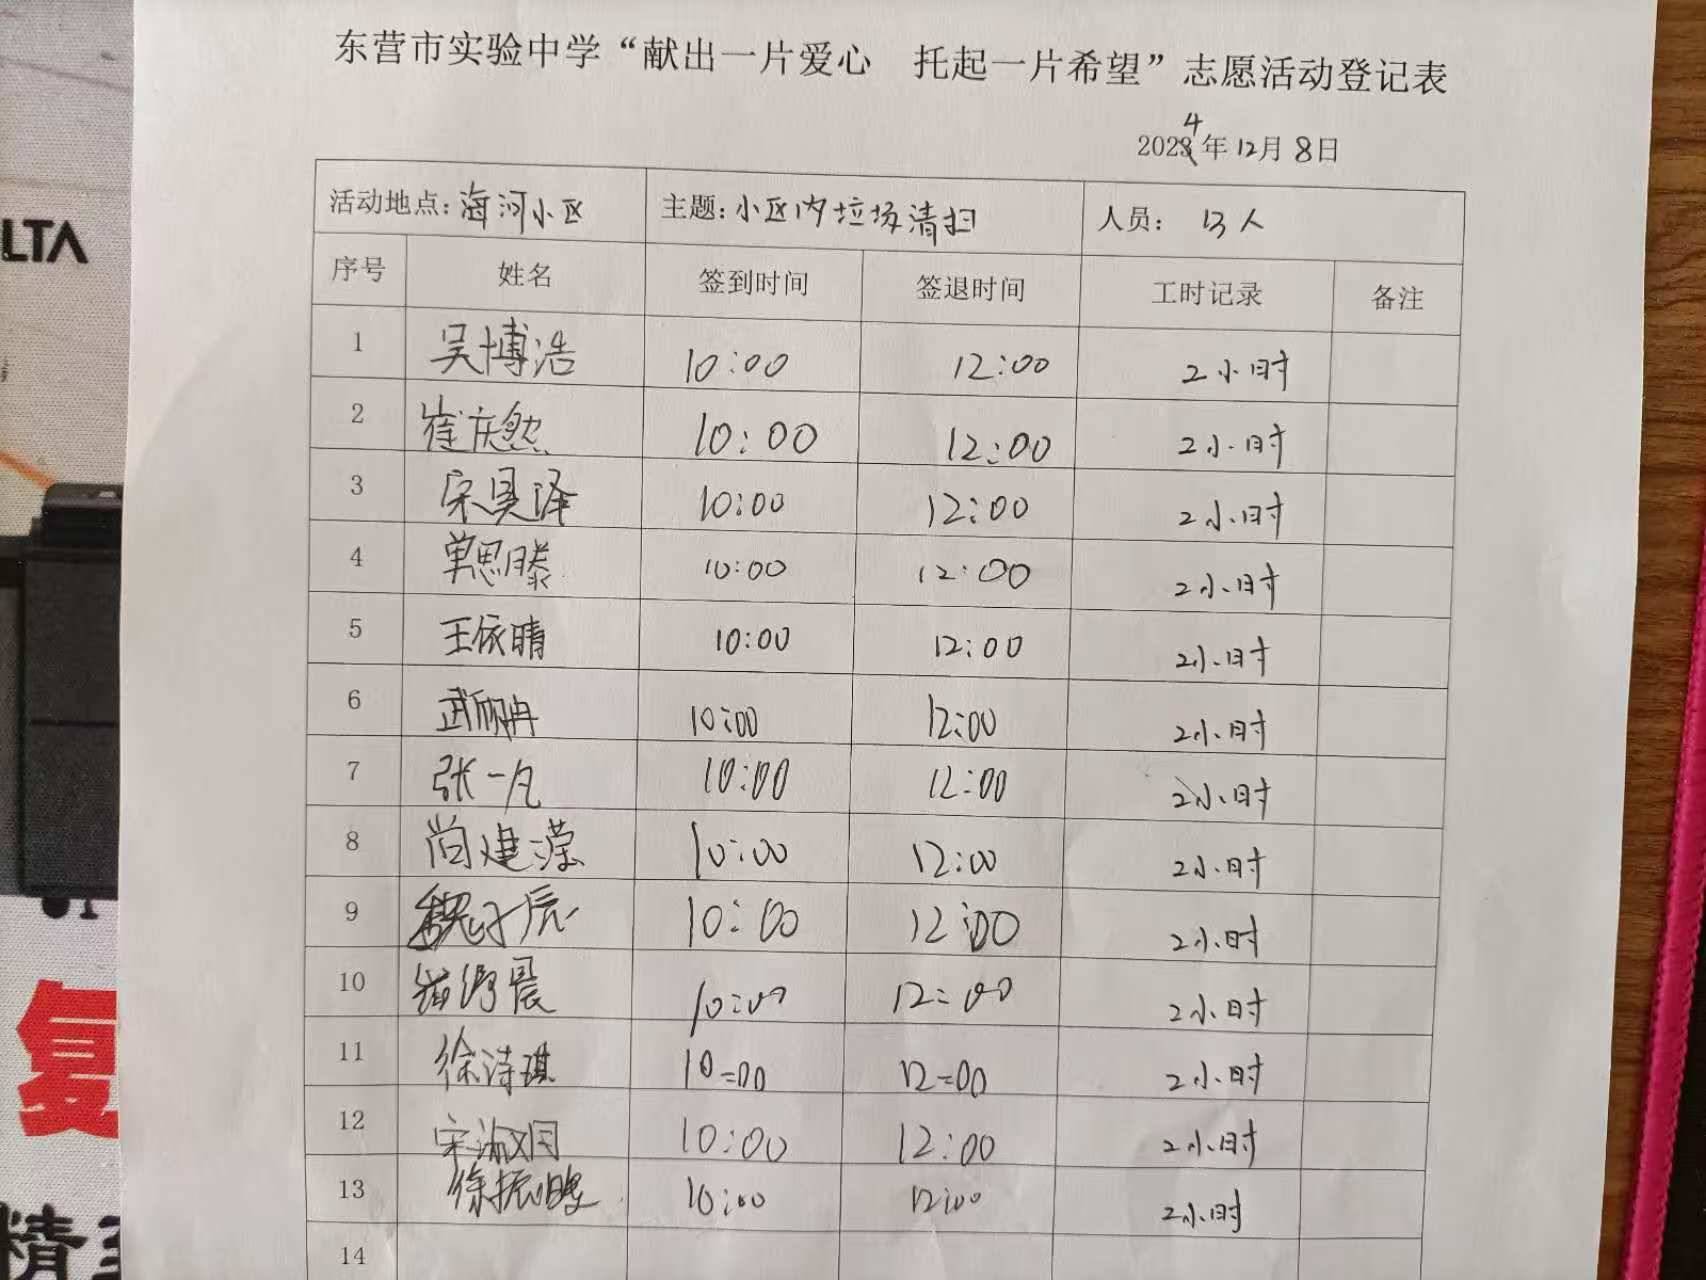 东营市实验中学“献出一片爱心 托起一片希望”志愿活动登记表
2024年12月8日
活动地点：海河小区 主题：小区内垃圾清扫 人员：13人
序号 姓名 签到时间 签退时间 工时记录 备注
1 吴博浩 10:00 12:00 2小时
2 崔庆然 10:00 12:00 2小时
3 宋昊泽 10:00 12:00 2小时
4 单思滕 10:00 12:00 2小时
5 王依晴 10:00 12:00 2小时
6 武欣冉 10:00 12:00 2小时
7 张一凡 10:00 12:00 2小时
8 尚建滢 10:00 12:00 2小时
9 魏子辰 10:00 12:00 2小时
10 晨 10:00 12:00 2小时
11 徐诗琪 10:00 12:00 2小时
12 宋淑 10:00 12:00 2小时
13 徐振 10:00 12:00 2小时
14
LTA
复
精